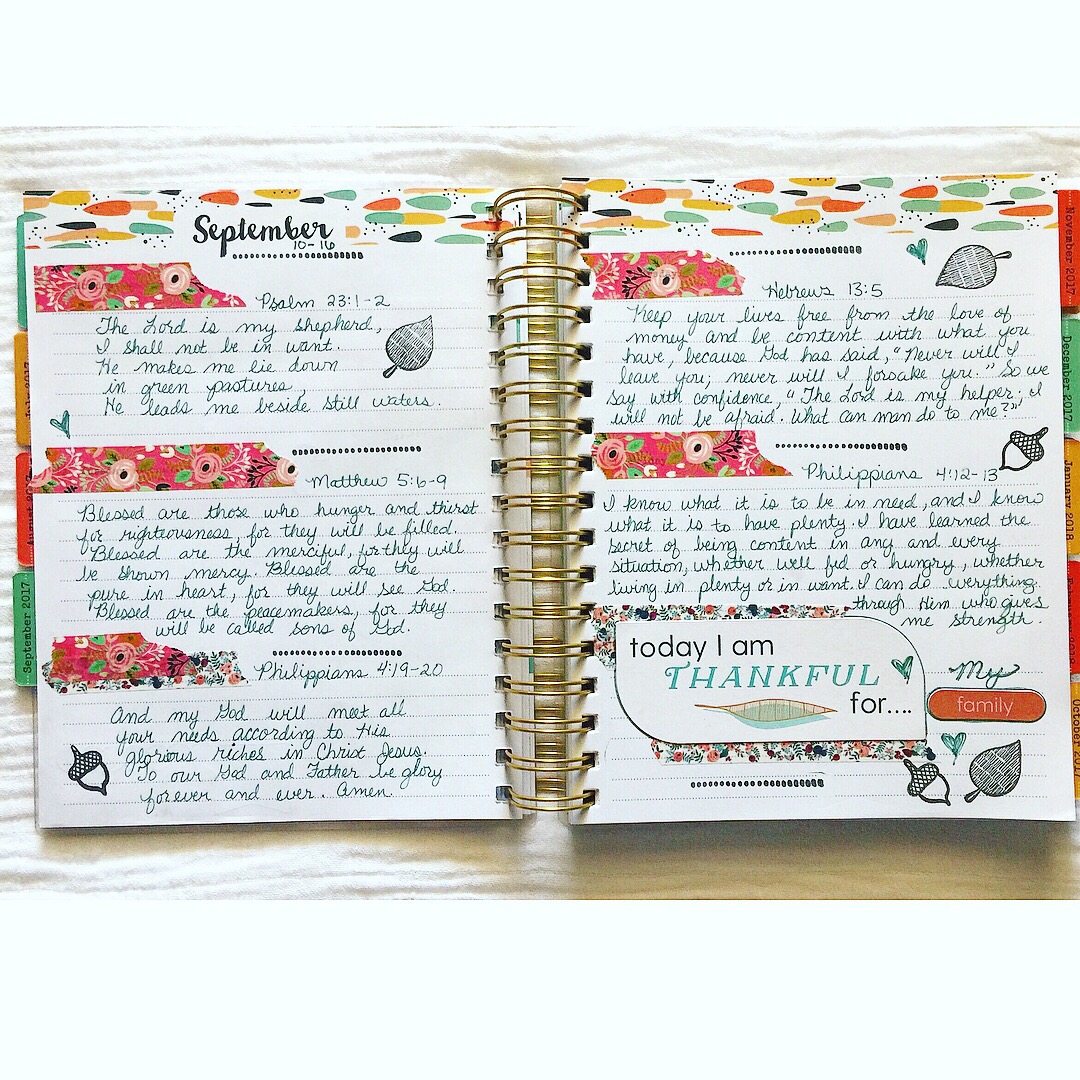 September
10-16
Psalm 23:1-2
The Lord is my shepherd,
I shall not be in want.
He makes me lie down
in green pastures,
He leads me beside still waters.
Matthew 5:6-9
Blessed are those who hunger and thirst
for righteousness, for they will be filled.
Blessed are the merciful, for they will
be shown mercy. Blessed are the
pure in heart, for they will see God.
Blessed are the peacemakers, for they
will be called sons of God.
Philippians 4:19-20
And my God will meet all
your needs according to His
glorious riches in Christ Jesus.
To our God and Father be glory
forever and ever. Amen.
Hebrews 13:5
Keep your lives free from the love of
money and be content with what you
have, because God has said, "Never will I
leave you; never will I forsake you." So we
say with confidence, "The Lord is my helper; I
will not be afraid. What can man do to me?"
Philippians 4:12-13
I know what it is to be in need, and I know
what it is to have plenty. I have learned the
secret of being content in any and every
situation, whether well fed or hungry, whether
living in plenty or in want. I can do everything
through Him who gives
me strength.
today I am
THANKFUL
for....
My
family
August 2017
September 2017
November 2017
December 2017
January 2018